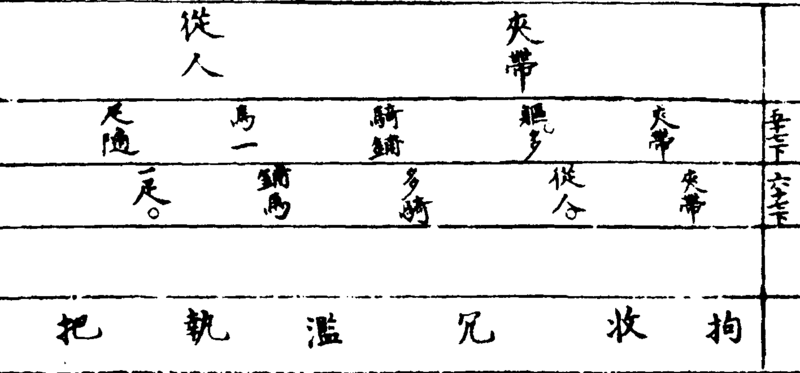 夾帶
從人
五十七下
夾帶
軀多
騎鋪
馬一
疋隨
六十七下
夾帶
從人
多騎
鋪馬
一疋。
拘收冗濫執把